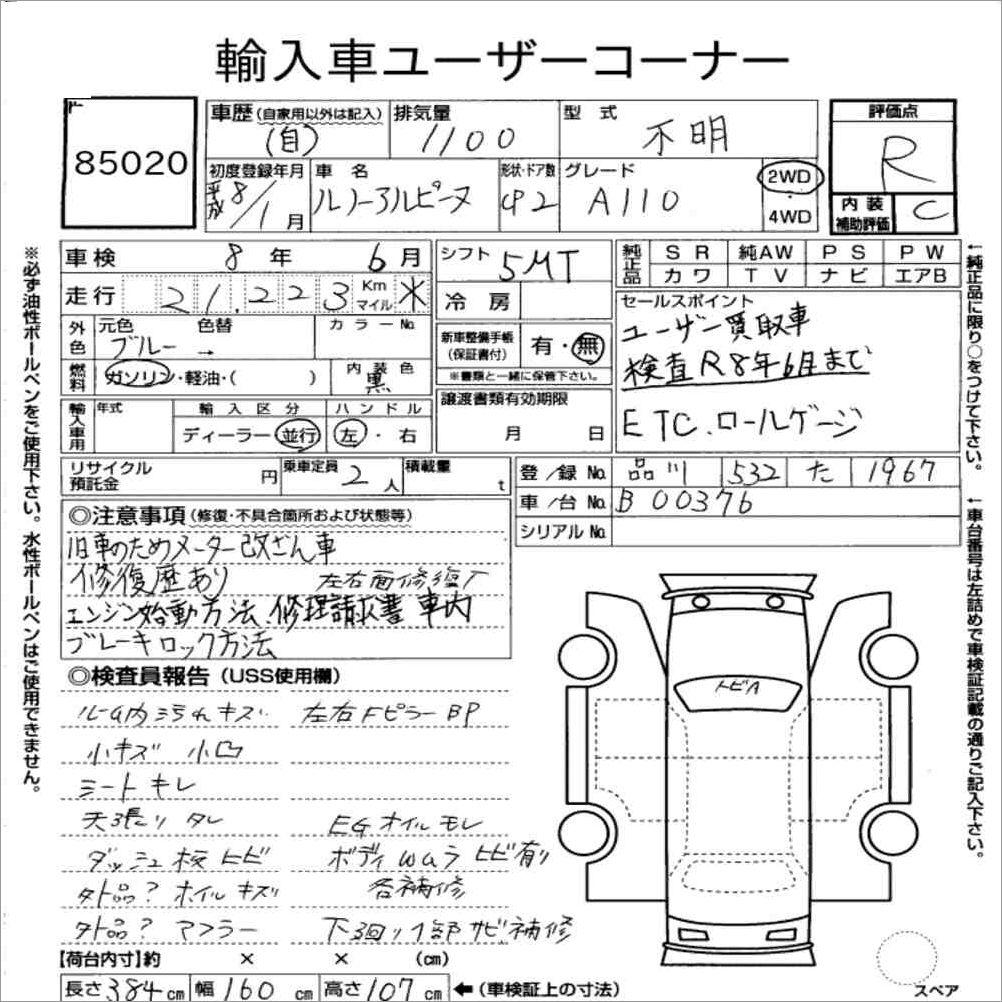 輸入車ユーザーコーナー
85020
車歴(自家用以外は記入) (自)
排気量 1100
型式 不明
評価点 R
初度登録年月 平成 8/1月
車名 ルノーアルピーヌ
形状・ドア数 CP2
グレード A110
2WD・4WD
内装補助評価 C
車検 8年 6月
シフト 5MT
純正品 SR 純AW PS PW
カワ TV ナビ エアB
走行 21,223 Km マイル *
冷房
セールスポイント
ユーザー買取車
検査R8年6月まで
ETC、ロールゲージ
外色 元色 ブルー → 色替 カラーNo.
新車整備手帳(保証書付) 有・無
※書類と一緒に保管下さい。
燃料 ガソリン・軽油・( )
内装色 黒
輸入車用 年式 輸入区分 ディーラー・並行 ハンドル 左・右
譲渡書類有効期限 月 日
リサイクル預託金 円
乗車定員 2人
積載量 t
登/録No. 品川 532 た 1967
車/台No. B 00376
シリアルNo.
◎注意事項(修復・不具合箇所および状態等)
旧車のためメーター改ざん車
修復歴あり 左右面修復
エンジン始動方法、修理請求書 車内
ブレーキロック方法
◎検査員報告(USS使用欄)
ルーム内汚れキズ 左右FピラーBP
小キズ 小凹
シートキレ
天張りタレ EGオイルモレ
ダッシュ板ヒビ ボディWムラ ヒビ有り
外品?ホイルキズ 各補修
外品?マフラー 下回り1部サビ補修
トビA
【荷台内寸】約 × × (cm)
長さ384cm 幅160cm 高さ107cm ←(車検証上の寸法)
スペア
※必ず油性ボールペンをご使用下さい。水性ボールペンはご使用できません。
←純正品に限り○をつけて下さい。
←車台番号は左詰めで車検証記載の通りご記入下さい。